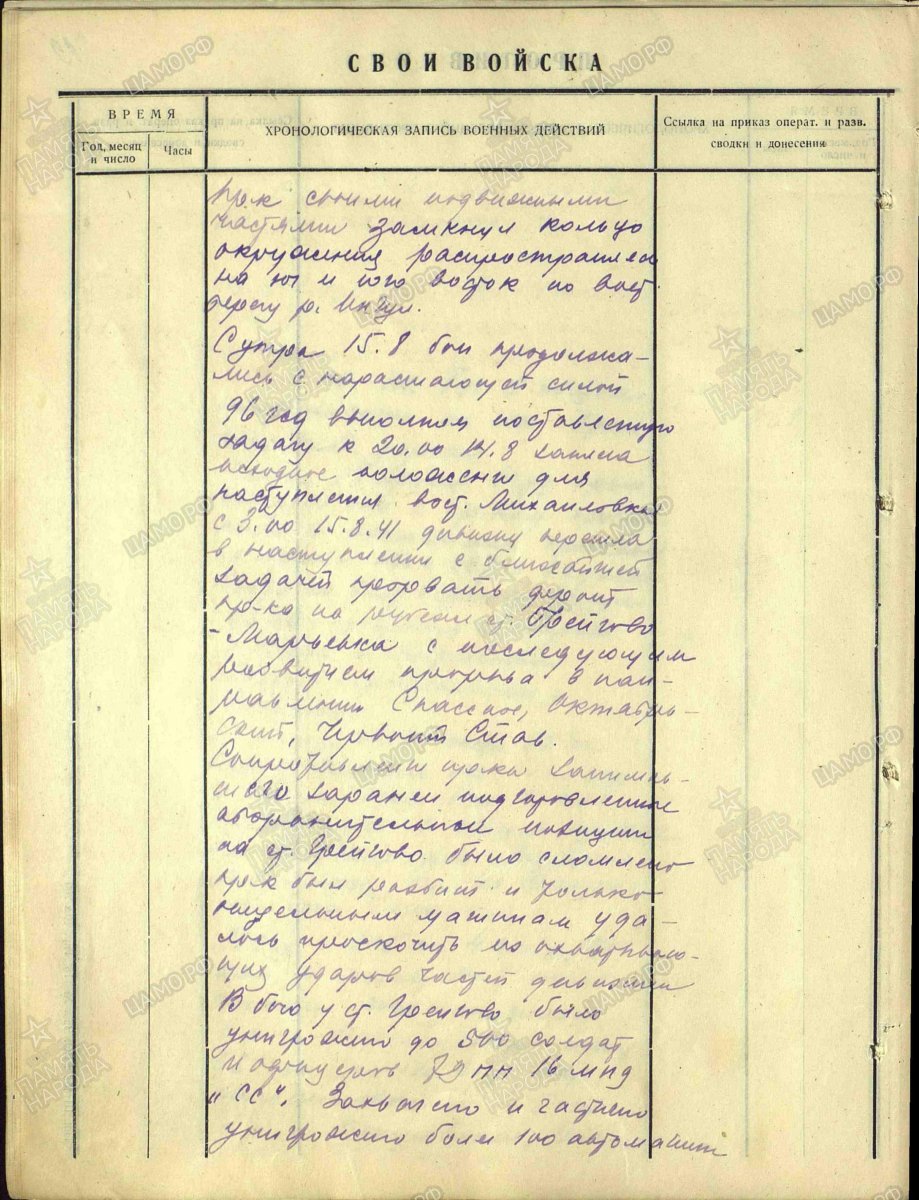 СВОИ ВОЙСКА
ВРЕМЯ
Год, месяц и число
Часы
ХРОНОЛОГИЧЕСКАЯ ЗАПИСЬ ВОЕННЫХ ДЕЙСТВИЙ
Ссылка на приказ операт. и разв.
сводки и донесения
пр-к своими подвижными
частями замкнул кольцо
окружения распространяясь
на юг и юго восток по вост.
берегу р. Ингул.
С утра 15.8 бои продолжа-
лись с нарастающей силой
96 гсд выполняя поставленную
задачу к 20.00 14.8 заняла
исходное положение для
наступления вост. Михайловка
с 3.00 15.8.41 дивизия перешла
в наступление с ближайшей
задачей прорвать фронт
пр-ка на рубеже ст. Грейгово
- Марьевка с последующим
развитием прорыва в нап-
равлении Спасское, Октябрь-
ский, Червоный Став.
Сопротивление пр-ка занимав-
шего заранее подготовленные
оборонительные позиции
на ст. Грейгово было сломлено
пр-к был разбит и только
отдельным машинам уда-
лось проскочить из охватываю-
щих ударов частей дивизии
В бою у ст. Грейгово было
уничтожено до 500 солдат
и офицеров 79 пп 16 мпд
„СС“. Захвачено и частично
уничтожено более 100 автомашин
ЦАМО.РФ
ПАМЯТЬ НАРОДА